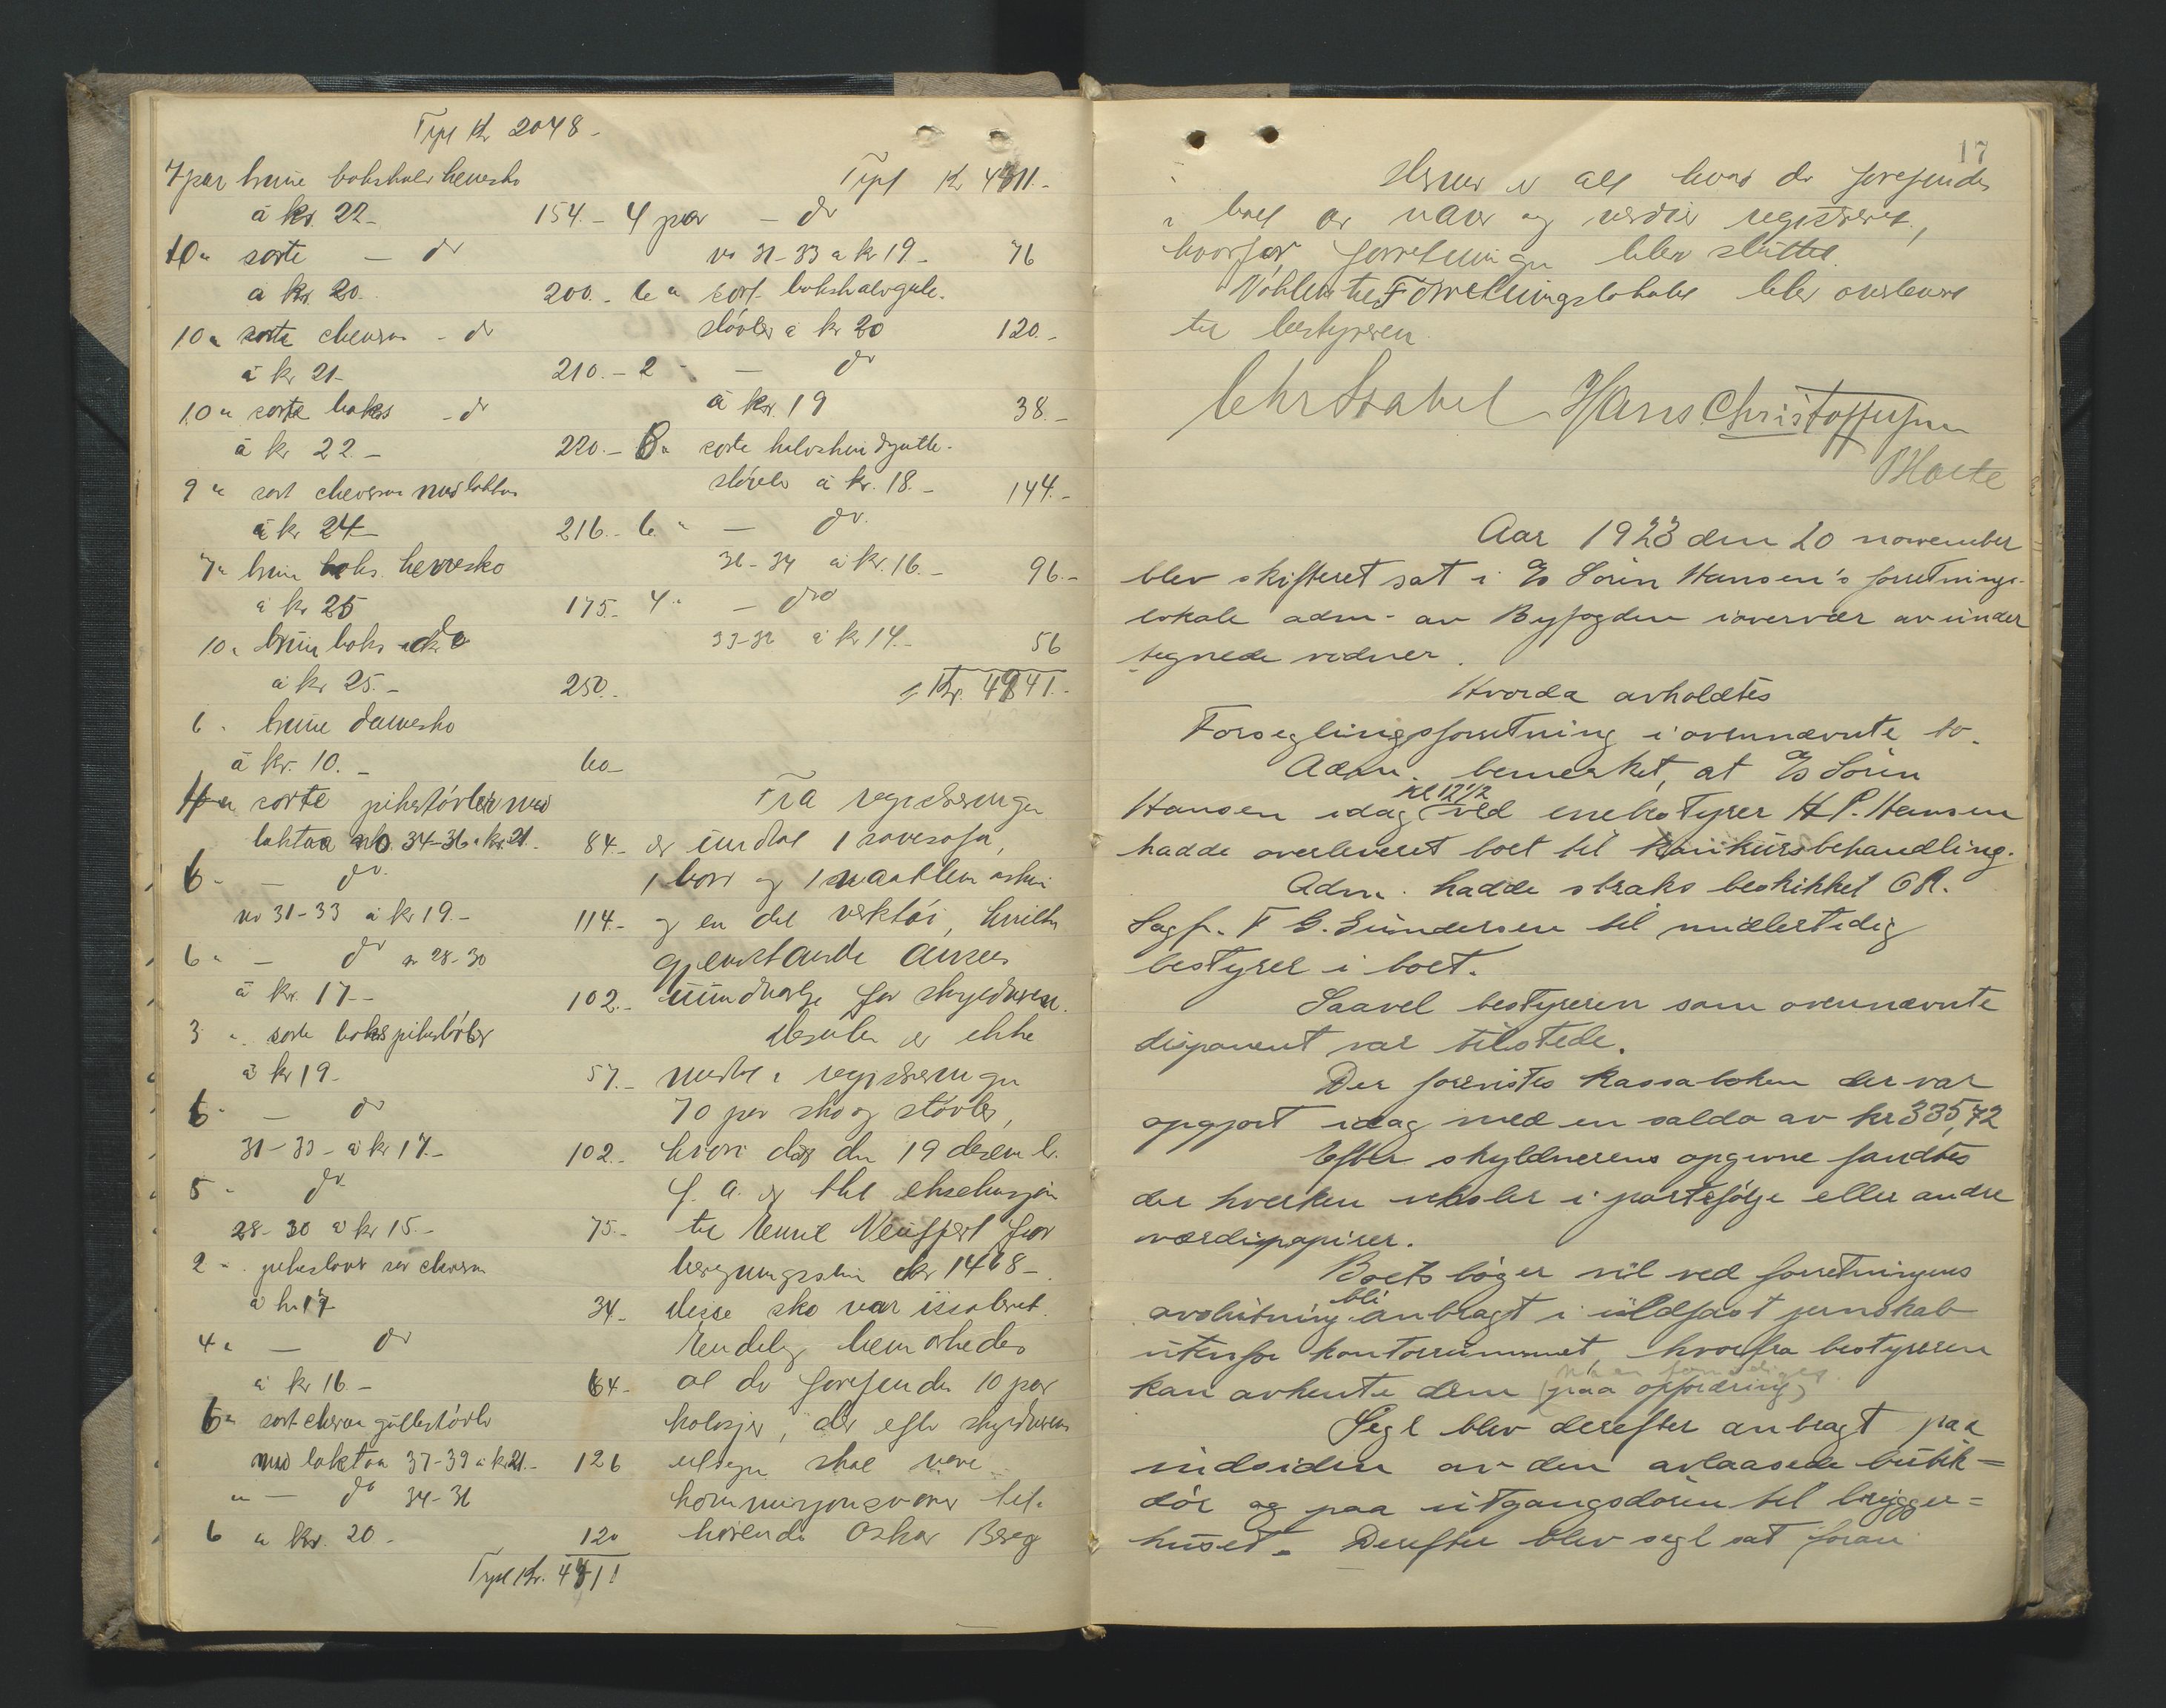 Trpt Kr 2048 -
7 par brune bokshalv herresko
à kr. 22 - 154.-
10 " sorte - do
à kr. 20. 200.-
10 " sorte chevrau - do
à kr 21 - 210.-
10 " sorte boks - do
à kr 22. - 220.-
9 " sort chevrau med laktaa
à kr 24 - 216.-
7 " brun boks. herresko
à kr 25 175.-
10 " brun boks do
à kr 25. - 250.-
6 " brune damesko
à kr. 10. - 60 -
4 " sorte pikestövler med
laktaa no 34-36 à kr. 21. - 84.-
6 " - do.
no 31-33 à kr 19. - 114.-
6 " - do n 28-30
à kr. 17 - - 102.-
3 " sorte boks pikestövler
à kr 19 - 57.-
6 " - do
31-33 - à kr 17. - 102.-
5 " do
28-30 à kr 15. - 75.-
2 " pikestövr sor chevrau
à kr 17 34 -
4 " - do
à kr 16 - 64 -
6 " sort chevrau guttestövler
med laktaa 37-39 à kr 21. - 126
" - do 34-36
6 à kr. 20 - 120
Trpt Kr. 4311
Trpt Kr 4311.-
4 par - do
no 31-33 à kr 19 - 76
6 " sort bokshalvgutte-
stövler à kr 20 120.-
2 - - do
à kr. 19 38.-
8 " sorte halvskind gutte-
stövler à kr. 18. - 144.-
6 " - do.
36-34 à kr. 16. - 96.-
4 " - do
33-32 à kr 14. - 56
Kr. 4841.-
Fra registreringen
er undtat 1 sovesofa,
1 bord og 1 maskin
og en del verktöi, hvilke
gjenstande ansees
uundværlige for skyldneren.
Desuten er ikke
medtat i registreringen
70 par sko og stövler,
hvori der den 19 decembr.
f. a. er tat eksekusjon
til Emil Neuffert for
kr 1468 -
Disse sko var isoleret.
Endelig bemerkedes
at der forefindes 10 par
kalosjer, der efter skyldnerens
utsagn skal være
kommisjonsvarer til-
hörende Oskar Berg
17
Hermed er alt hvad der forefindes
i boet av varer og verdier registreret,
hvorfor forretningen blev sluttet.
Nöklen til Forretningslokalet blev overlevert
til bestyreren
Chr Stabel Hans Christoffersen
Aar 1923 den 20 november
blev skifteret sat i Es Sörin Hansen's forretnings-
lokale adm. av Byfogden i overvær av under
tegnede vidner.
Hvorda avholdtes
Forseglingsforretning i ovennævnte bo.
Adm. bemerket, at Es Sörin
Hansen idag kl 12 1/2 ved enebestyrer H P. Hansen
hadde overleveret boet til konkursbehandling.
Adm. hadde straks beskikket OR.
Sagf. F G. Gundersen til midlertidig
bestyrer i boet.
Saavel bestyreren som ovennævnte
disponent var tilstede.
Der forevistes kassaboken der var
opgjort idag med en saldo av kr 335,72
Efter skyldnerens opgivne fandtes
der hverken veksler i portefölje eller andre
værdipapirer.
Boets böger vil ved forretningens
avslutning bli anbragt i ildfast jernskab
utenfor kontorrummet, hvorfra bestyreren
kan avhente dem (paa opfordring)
Segl blev derefter anbragt paa
indsiden av den avlaasede butik=
dör og paa utgangsdören til brygger=
huset. Derefter blev segl sat foran